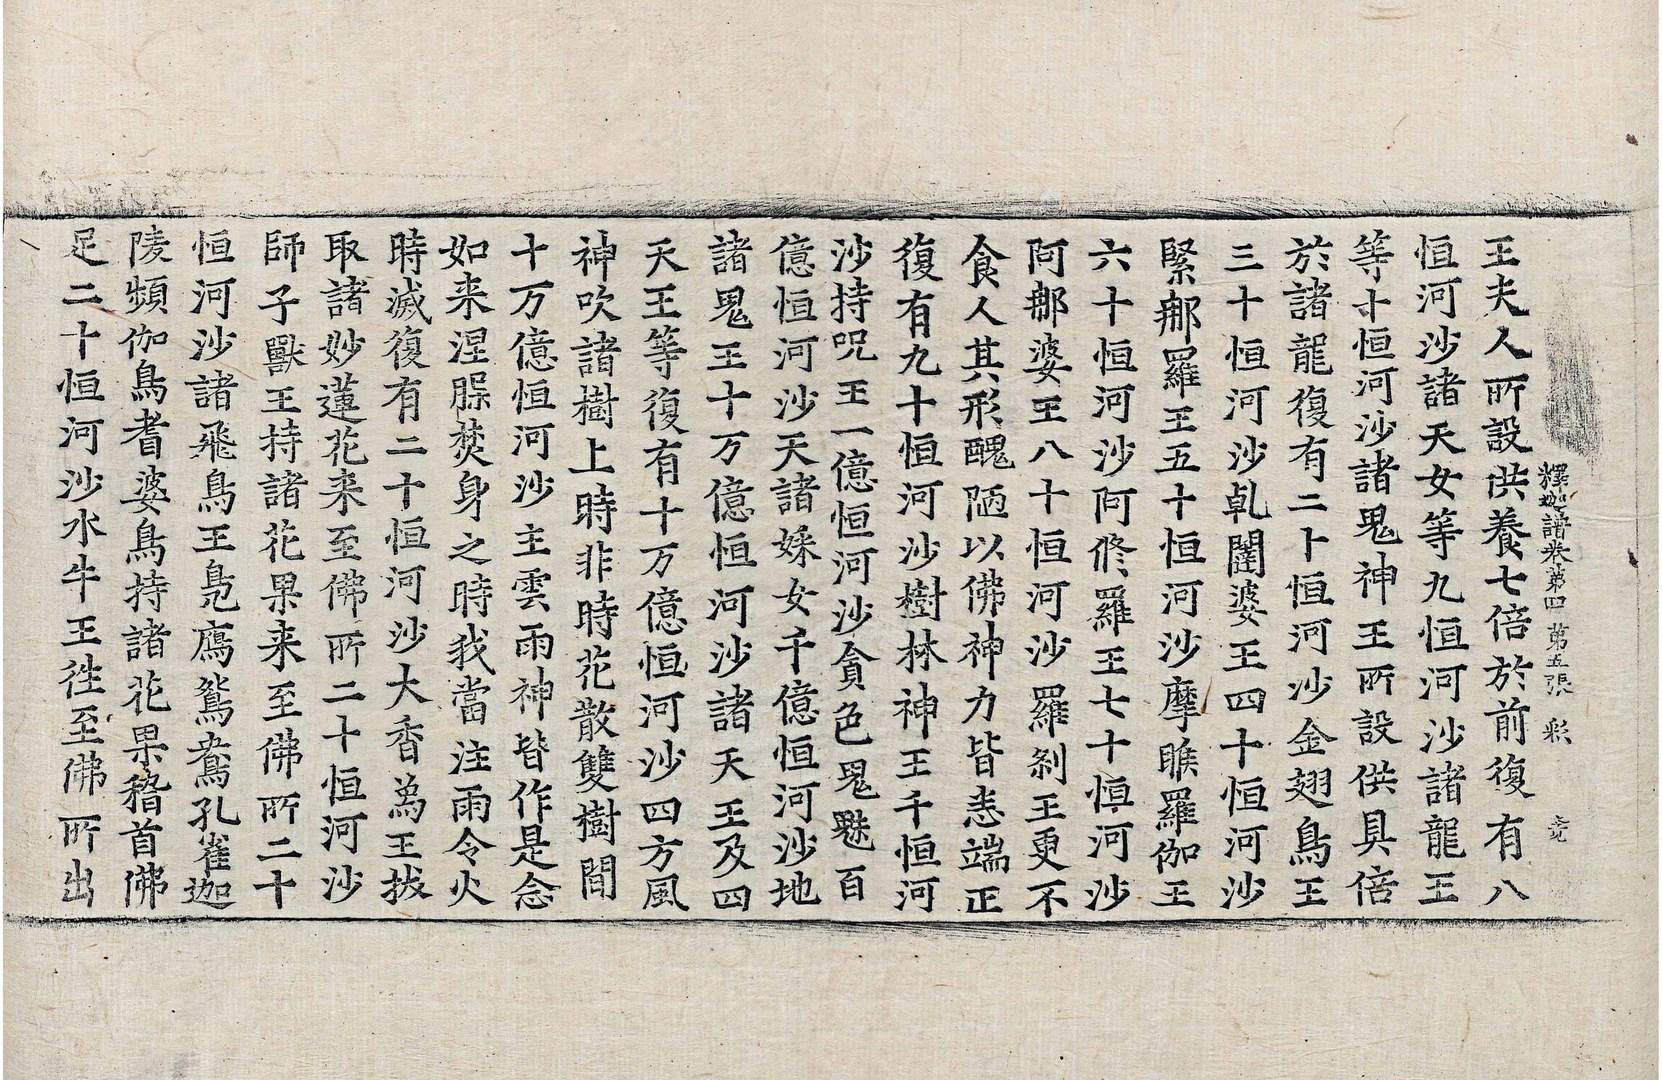 釋迦譜卷第四 第五張 彩
王夫人所設供養七倍於前復有八
恒河沙諸天女等九恒河沙諸龍王
等十恒河沙諸鬼神王所設供具倍
於諸龍復有二十恒河沙金翅鳥王
三十恒河沙乹闥婆王四十恒河沙
緊那羅王五十恒河沙摩睺羅伽王
六十恒河沙阿脩羅王七十恒河沙
阿那婆王八十恒河沙羅剎王更不
食人其形醜陋以佛神力皆恚端正
復有九十恒河沙樹林神王千恒河
沙持呪王一億恒河沙貪色鬼魅百
億恒河沙天諸婇女千億恒河沙地
諸鬼王十万億恒河沙諸天王及四
天王等復有十万億恒河沙四方風
神吹諸樹上時非時花散雙樹閒
十万億恒河沙主雲雨神皆作是念
如来涅槃焚身之時我當注雨令火
時滅復有二十恒河沙大香爲王拔
取諸妙蓮花来至佛所二十恒河沙
師子獸王持諸花果来至佛所二十
恒河沙諸飛鳥王鳧鴈鴛鴦孔雀迦
陵頻伽鳥耆婆鳥持諸花果稽首佛
足二十恒河沙水牛王徃至佛所出